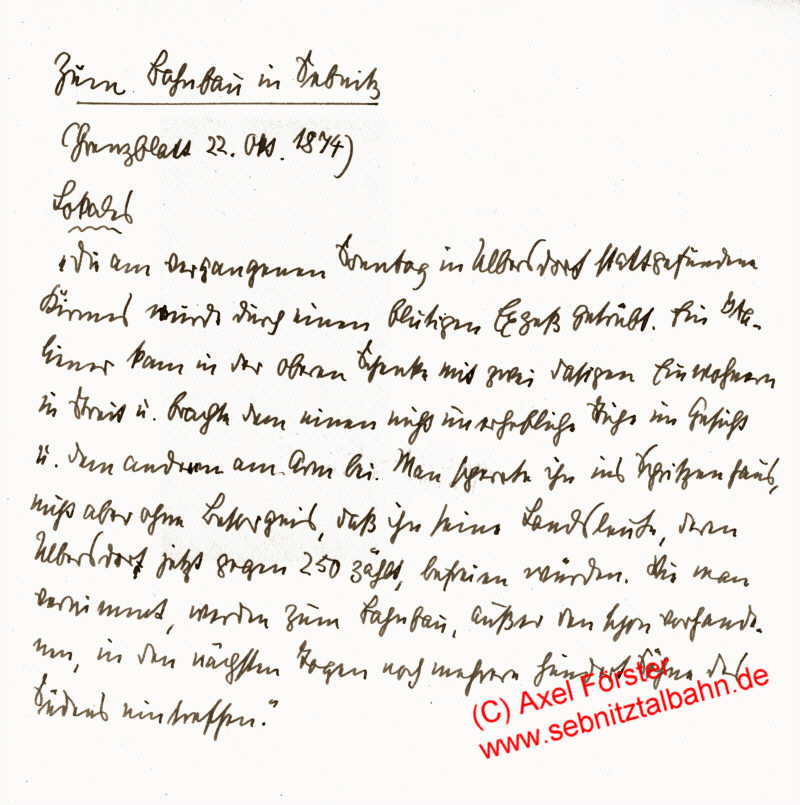 Zum Bahnbau in Sebnitz
(Grenzblatt 22. Okt. 1874)
Lokales
„Die am vergangenen Sonntag in Ulbersdorf stattgefundene
Kirmes wurde durch einen blutigen Exzeß getrübt. Ein Ita-
liener kam in der oberen Schenke mit zwei dasigen Einwohnern
in Streit u. brachte dem einen nicht unerhebliche Stiche im Gesicht
u. dem anderen am Arm bei. Man sperrte ihn ins Spritzenhaus,
nicht aber ohne Besorgnis, daß ihn seine Landsleute, deren
Ulbersdorf jetzt gegen 250 zählt, befreien würden. Wie man
vernimmt, werden zum Bahnbau, außer den schon vorhande-
nen, in den nächsten Tagen noch mehrere hundert Söhne des
Südens eintreffen."
(C) Axel Förster
www.sebnitztalbahn.de